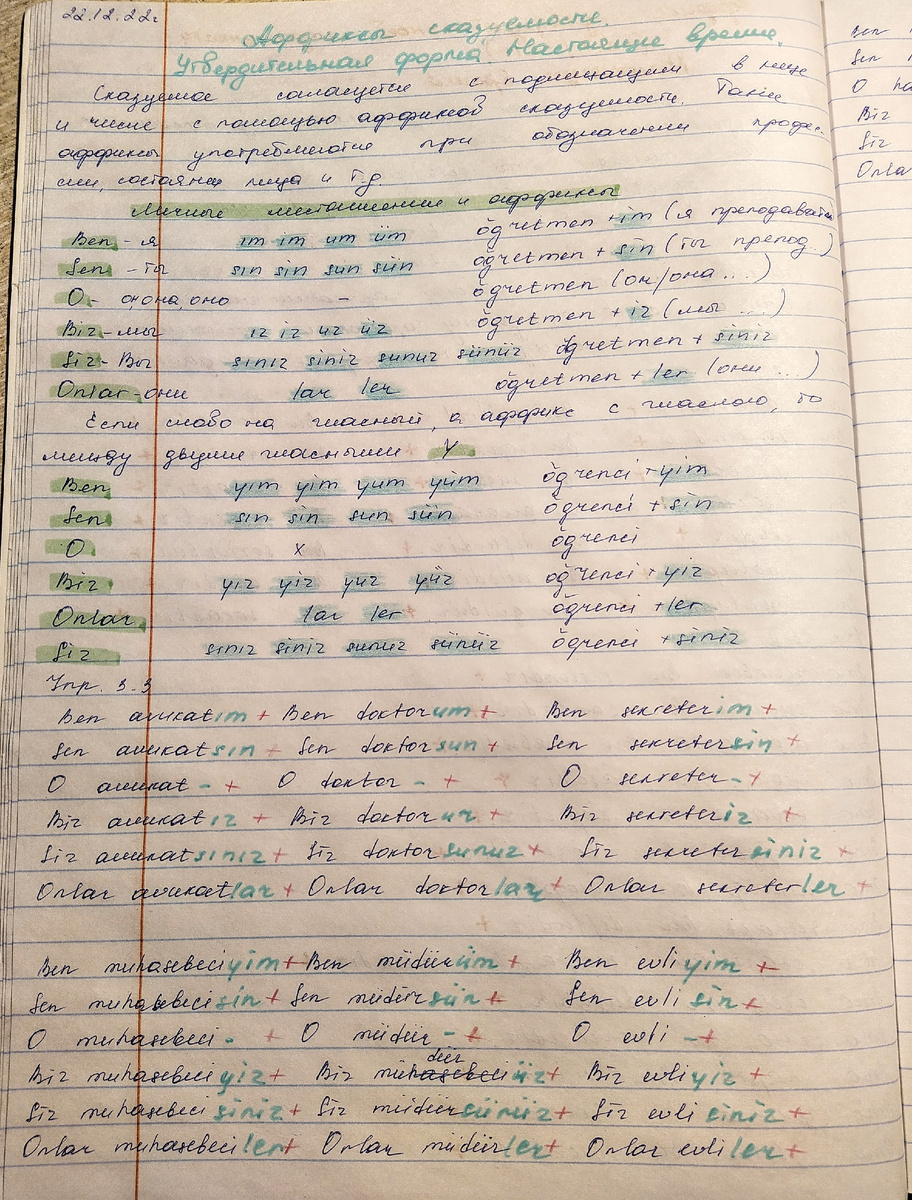 22.12.22г.
Аффиксы сказуемости.
Утвердительная форма. Настоящее время.
Сказуемое согласуется с подлежащим в лице
и числе с помощью аффиксов сказуемости. Такие
аффиксы употребляются при обозначении профес-
сии, состояния лица и т.д.
Личные местоимения и аффиксы
Ben - я ım im um üm öğretmen + im (я преподаватель)
Sen - ты sın sin sun sün öğretmen + sin (ты препод.)
O - он, она, оно - öğretmen (он/она...)
Biz - мы ız iz uz üz öğretmen + iz (мы ...)
Siz - Вы sınız siniz sunuz sünüz öğretmen + siniz
Onlar - они lar ler öğretmen + ler (они ...)
Если слово на гласный, а аффикс с гласной, то
между двумя гласными Y
Ben yım yim yum yüm öğrenci + yim
Sen sın sin sun sün öğrenci + sin
O x öğrenci
Biz yız yiz yuz yüz öğrenci + yiz
Onlar lar ler öğrenci + ler
Siz sınız siniz sunuz sünüz öğrenci + siniz
Упр. 3.3
Ben avukatım + Ben doktorum + Ben sekreterim +
Sen avukatsın + Sen doktorsun + Sen sekretersin +
O avukat - + O doktor - + O sekreter - +
Biz avukatız + Biz doktoruz + Biz sekreteriz +
Siz avukatsınız + Siz doktorsunuz + Siz sekretersiniz +
Onlar avukatlar + Onlar doktorlar + Onlar sekreterler +
+
Ben muhasebeciyim + Ben müdürüm + Ben evliyim +
Sen muhasebecisin + Sen müdürsün + Sen evlisin +
O muhasebeci - + O müdür - + O evli - +
Biz muhasebeciyiz + Biz müdürüz + Biz evliyiz +
Siz muhasebecisiniz + Siz müdürsünüz + Siz evlisiniz +
Onlar muhasebeciler + Onlar müdürler + Onlar evliler +
Ben
Sen
O
Biz
Siz
Onlar